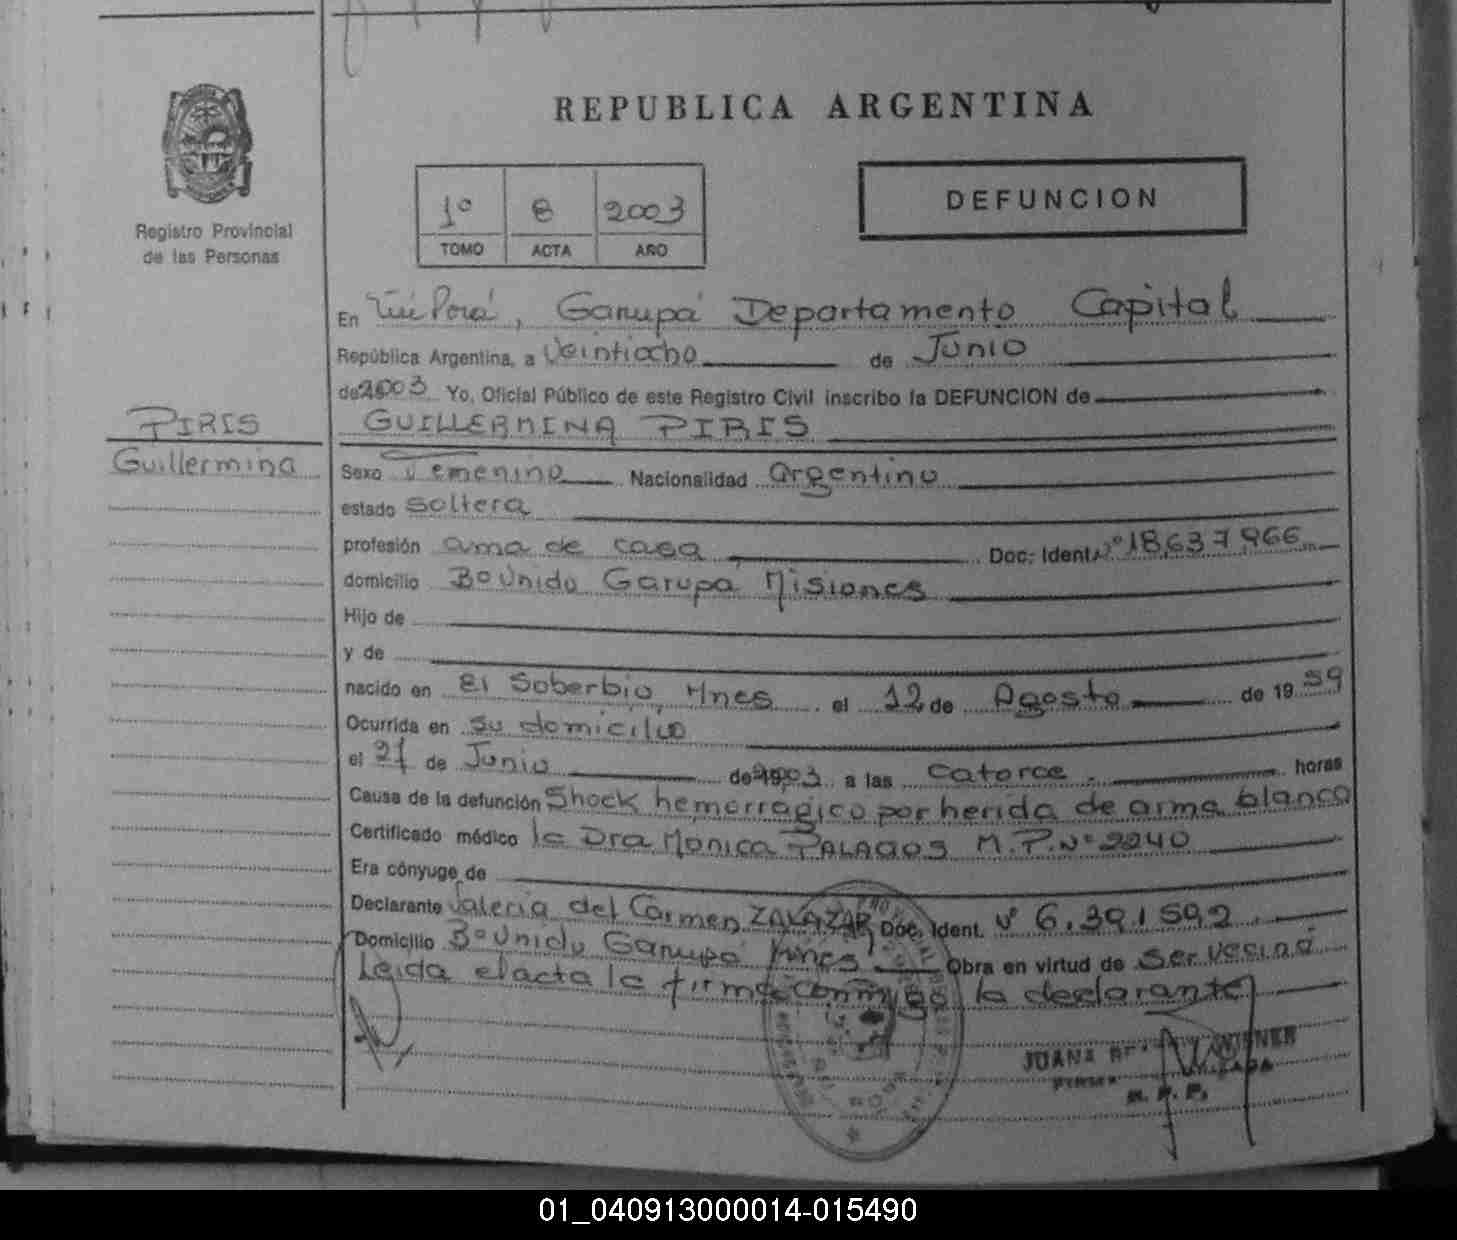 REPUBLICA ARGENTINA
Registro Provincial
de las Personas
1º 8 2003
TOMO ACTA AÑO
DEFUNCION
En Porá, Garupá Departamento Capital
República Argentina, a Veintiocho de Junio
de 2003 Yo, Oficial Público de este Registro Civil inscribo la DEFUNCION de
PIRIS
GUILLERMINA PIRIS
Guillermina
Sexo Femenino Nacionalidad argentino
estado soltera
profesión ama de casa Doc. Ident. Nº 18.637.966
domicilio Bº Unido Garupa Misiones
Hijo de
y de
nacido en El Soberbio, Mnes el 12 de Agosto de 19 59
Ocurrida en su domicilio
el de Junio de 2003 a las catorce horas
Causa de la defunción Shock hemorragico por herida de arma blanca
Certificado médico la Dra Monica PALACIOS M.P. Nº 2240
Era cónyuge de
Declarante Valeria del Carmen ZALAZAR Doc. Ident. Nº 6.391.592
Domicilio Bº Unido Garupá Mnes Obra en virtud de ser vecina
Leida el acta la firma conmigo la declarante
JUANA
01_040913000014-015490